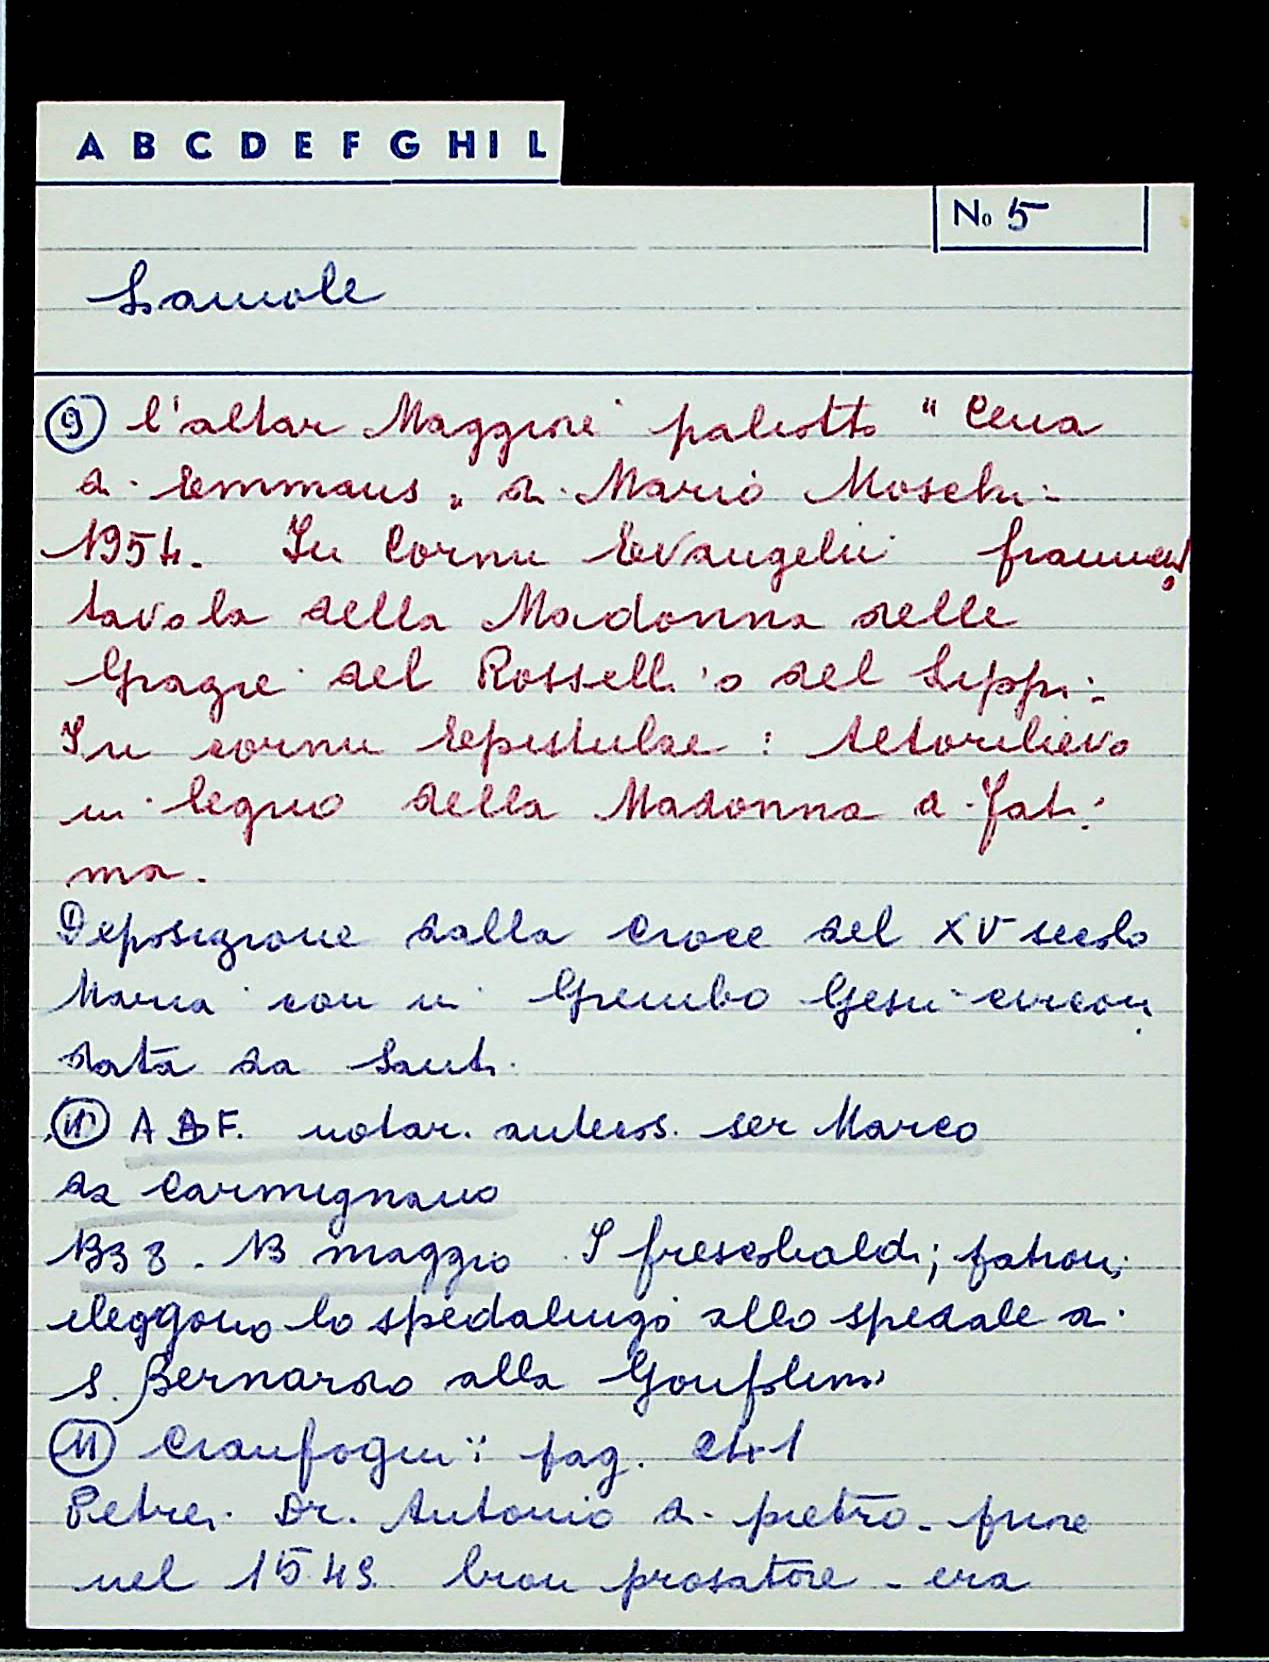 A B C D E F G H I L
No 5
Lamole
9 l'altar Maggiore paliotto "Cena
di Emmaus" di Mario Moschi:
1954. In Cornu Evangelii frammen
tavola della Madonna delle
Grazie del Rosselli o del Lippi:
In cornu Epistulae: Altorilievo
in legno della Madonna di Fati:
ma.
Deposizione dalla Croce del XV secolo
Maria con in Grembo Gesù circon
data da Santi.
notar. antecos. ser Marco
da Carmignano
1338. 13 maggio I frescobaldi; patroni
eleggono lo spedalingo allo spedale di
S. Bernardo alla
11 Cianfogni: pag. 241
Petrei Dr. Antonio di pietro. fiorì
nel 1549 buon prosatore - era